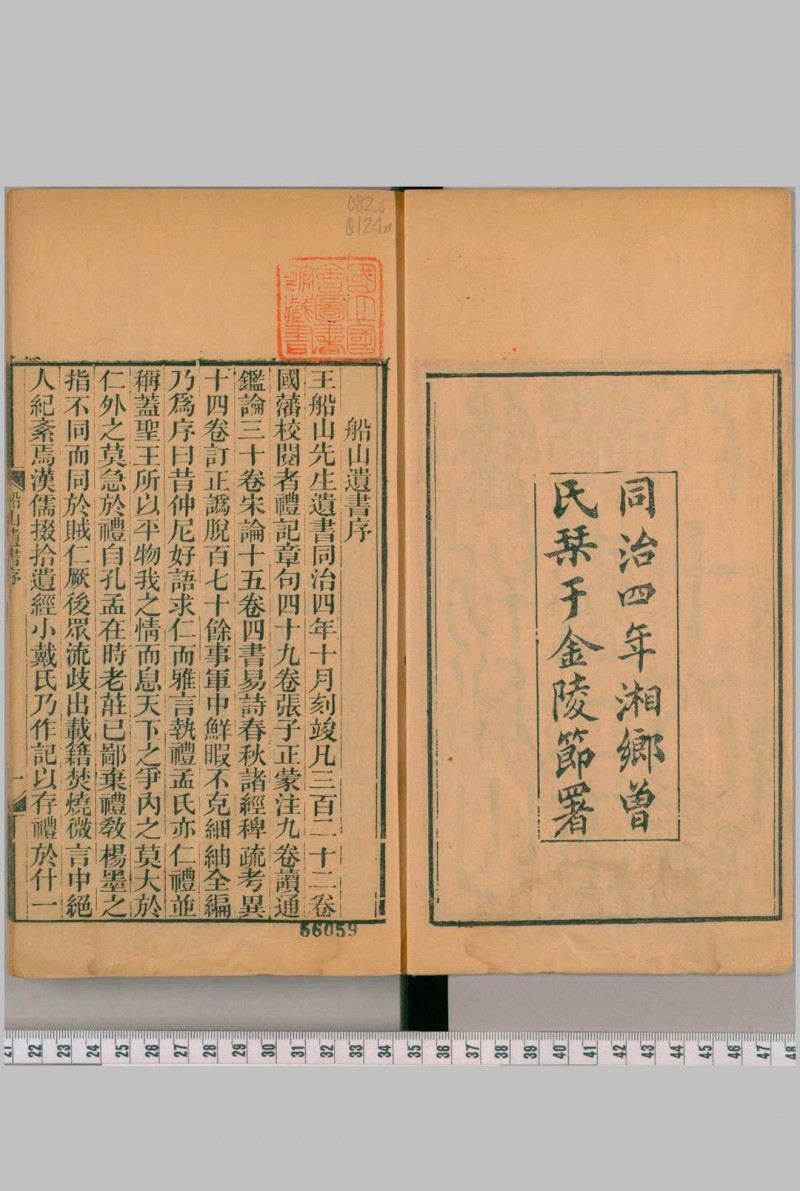 同治四年湘鄉曾
氏栞于金陵節署
082.6
O124
國立國
會圖書
館藏書
船山遺書序
王船山先生遺書同治四年十月刻竣凡三百二十二卷
國藩校閱者禮記章句四十九卷張子正蒙注九卷讀通
鑑論三十卷宋論十五卷四書易詩春秋諸經稗疏考異
十四卷訂正譌脫百七十餘事軍中鮮暇不克細紬全編
乃爲序曰昔仲尼好語求仁而雅言執禮孟氏亦仁禮並
稱蓋聖王所以平物我之情而息天下之爭內之莫大於
仁外之莫急於禮自孔孟在時老莊已鄙棄禮敎楊墨之
指不同而同於賊仁厥後眾流歧出載籍焚燒微言中絕
人紀紊焉漢儒掇拾遺經小戴氏乃作記以存禮於什一
船山遺書序
一
56059
21 22 23 24 25 26 27 28 29 30 31 32 33 34 35 36 37 38 39 40 41 42 43 44 45 46 47 48